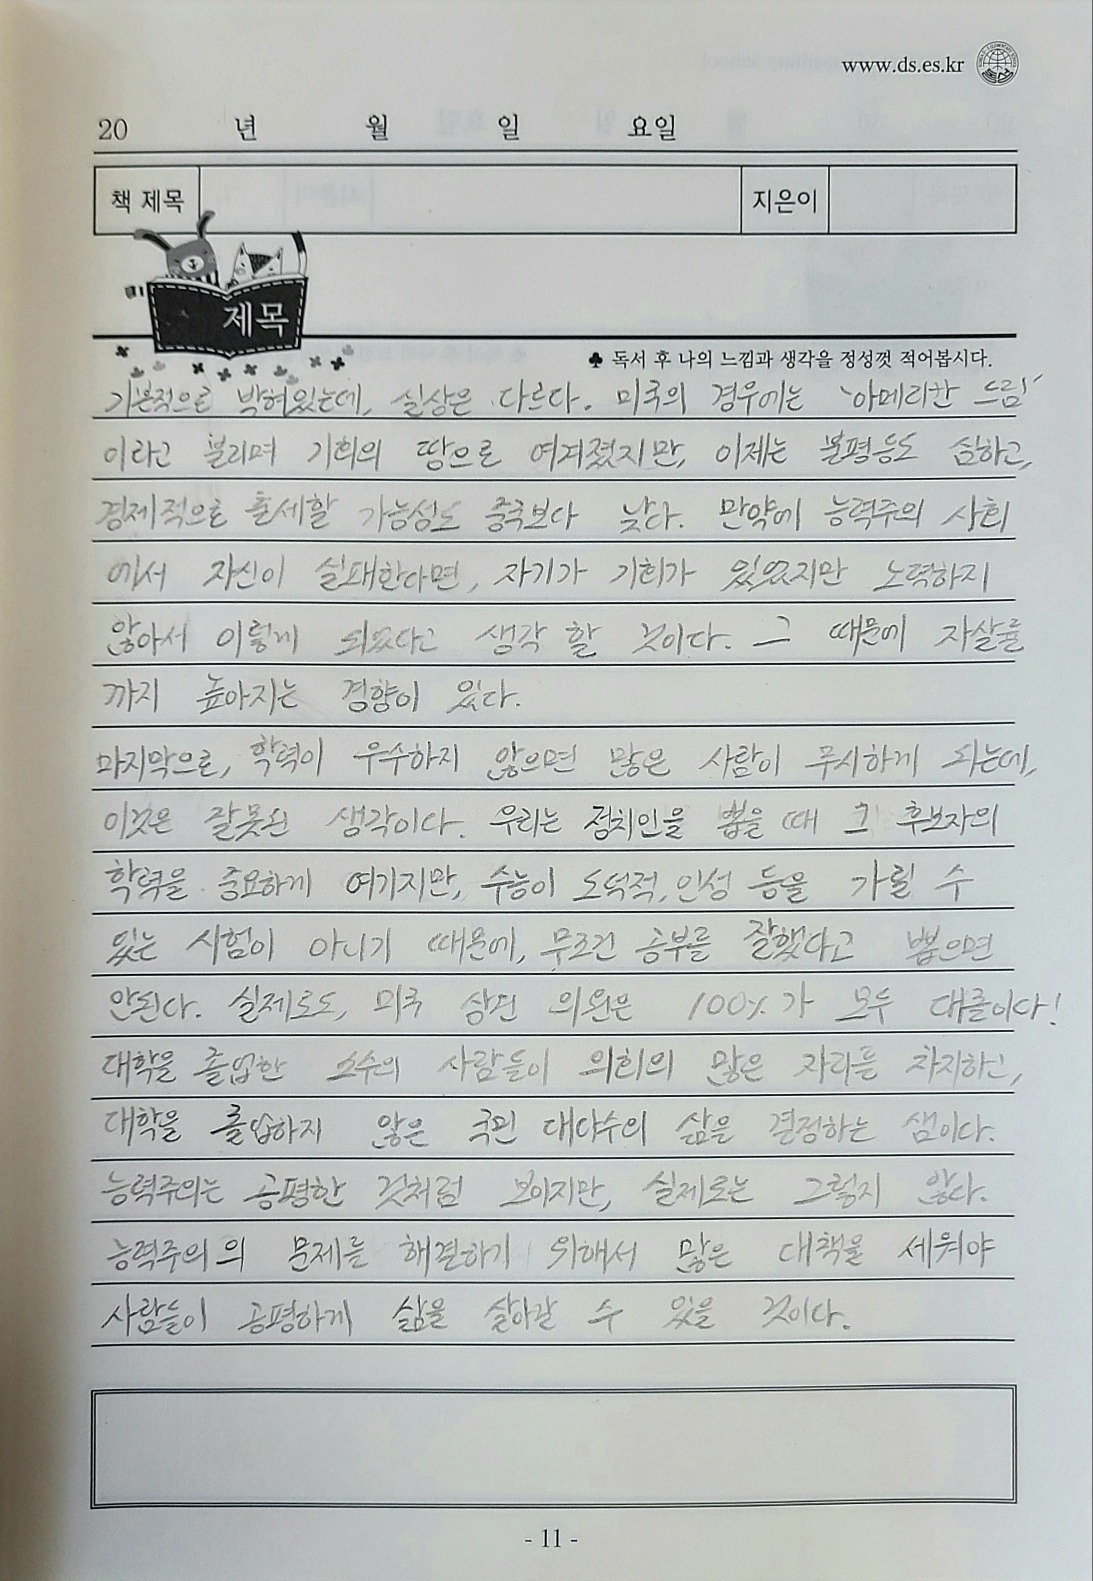 www.ds.es.kr
20 년 월 일 요일
책 제목 지은이
제목
♣ 독서 후 나의 느낌과 생각을 정성껏 적어봅시다.
기본적으로 박혀있는데, 실상은 다르다. 미국의 경우에는 '아메리칸 드림'
이라고 불리며 기회의 땅으로 여겨졌지만, 이제는 불평등도 심하고,
경제적으로 출세할 가능성도 중국보다 낮다. 만약에 능력주의 사회
에서 자신이 실패한다면, 자기가 기회가 있었지만 노력하지
않아서 이렇게 되었다고 생각 할 것이다. 그 때문에 자살률
까지 높아지는 경향이 있다.
마지막으로, 학력이 우수하지 않으면 많은 사람이 무시하게 되는데,
이것은 잘못된 생각이다. 우리는 정치인을 뽑을 때 그 후보자의
학력을 중요하게 여기지만, 수능이 도덕적, 인성 등을 가릴 수
있는 시험이 아니기 때문에, 무조건 공부를 잘했다고 뽑으면
안된다. 실제로도, 미국 상원 의원은 100%가 모두 대졸이다!
대학을 졸업한 소수의 사람들이 의회의 많은 자리를 차지하고,
대학을 졸업하지 않은 국민 대다수의 삶을 결정하는 샘이다.
능력주의는 공평한 것처럼 보이지만, 실제로는 그렇지 않다.
능력주의의 문제를 해결하기 위해서 많은 대책을 세워야
사람들이 공평하게 삶을 살아갈 수 있을 것이다.
- 11 -